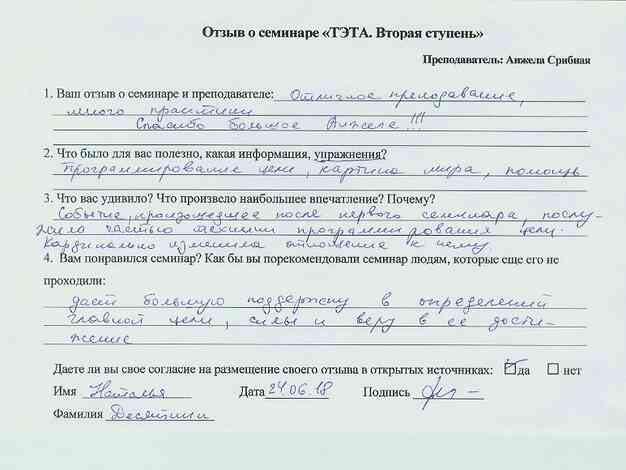 Отзыв о семинаре «ТЭТА. Вторая ступень»
Преподаватель: Анжела Срибная
1. Ваш отзыв о семинаре и преподавателе: Отличное преподавание,
много практики
Спасибо большое Анжеле!!!
2. Что было для вас полезно, какая информация, упражнения?
Программирование цели, картина мира, помощь
3. Что вас удивило? Что произвело наибольшее впечатление? Почему?
Событие, произошедшее после первого семинара, послу-
жило частью техники программирования цели.
Кардинально изменила отношение к нему.
4. Вам понравился семинар? Как бы вы порекомендовали семинар людям, которые еще его не
проходили:
даст большую поддержку в определении
главной цели, силы и веру в её дости-
жение
Даете ли вы свое согласие на размещение своего отзыва в открытых источниках: да нет
Имя Наталья Дата 24.06.18 Подпись
Фамилия